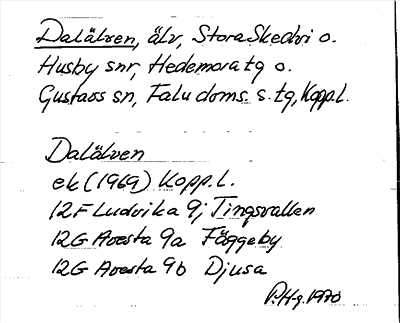 Dalälven, älv, Stora Skedvi o.
Husby snr, Hedemora tg o.
Gustavs sn, Falu doms. s. tg, Kopp.l.
Dalälven
ek (1969) Kopp.l.
12F Ludvika 9j Tingsvallen
12G Avesta 9a Fäggeby
12G Avesta 9b Djusa
P.Hg. 1970